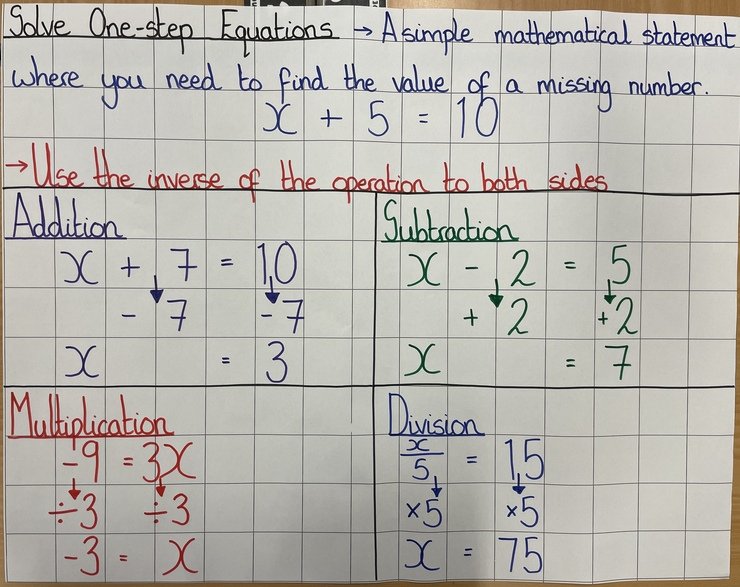 Solve One-step Equations → A simple mathematical statement
where you need to find the value of a missing number.
x + 5 = 10
→ Use the inverse of the operation to both sides
Addition
x + 7 = 10
- 7 - 7
x = 3
Subtraction
x - 2 = 5
+ 2 + 2
x = 7
Multiplication
-9 = 3x
÷3 ÷3
-3 = x
Division
x/5 = 15
×5 ×5
x = 75